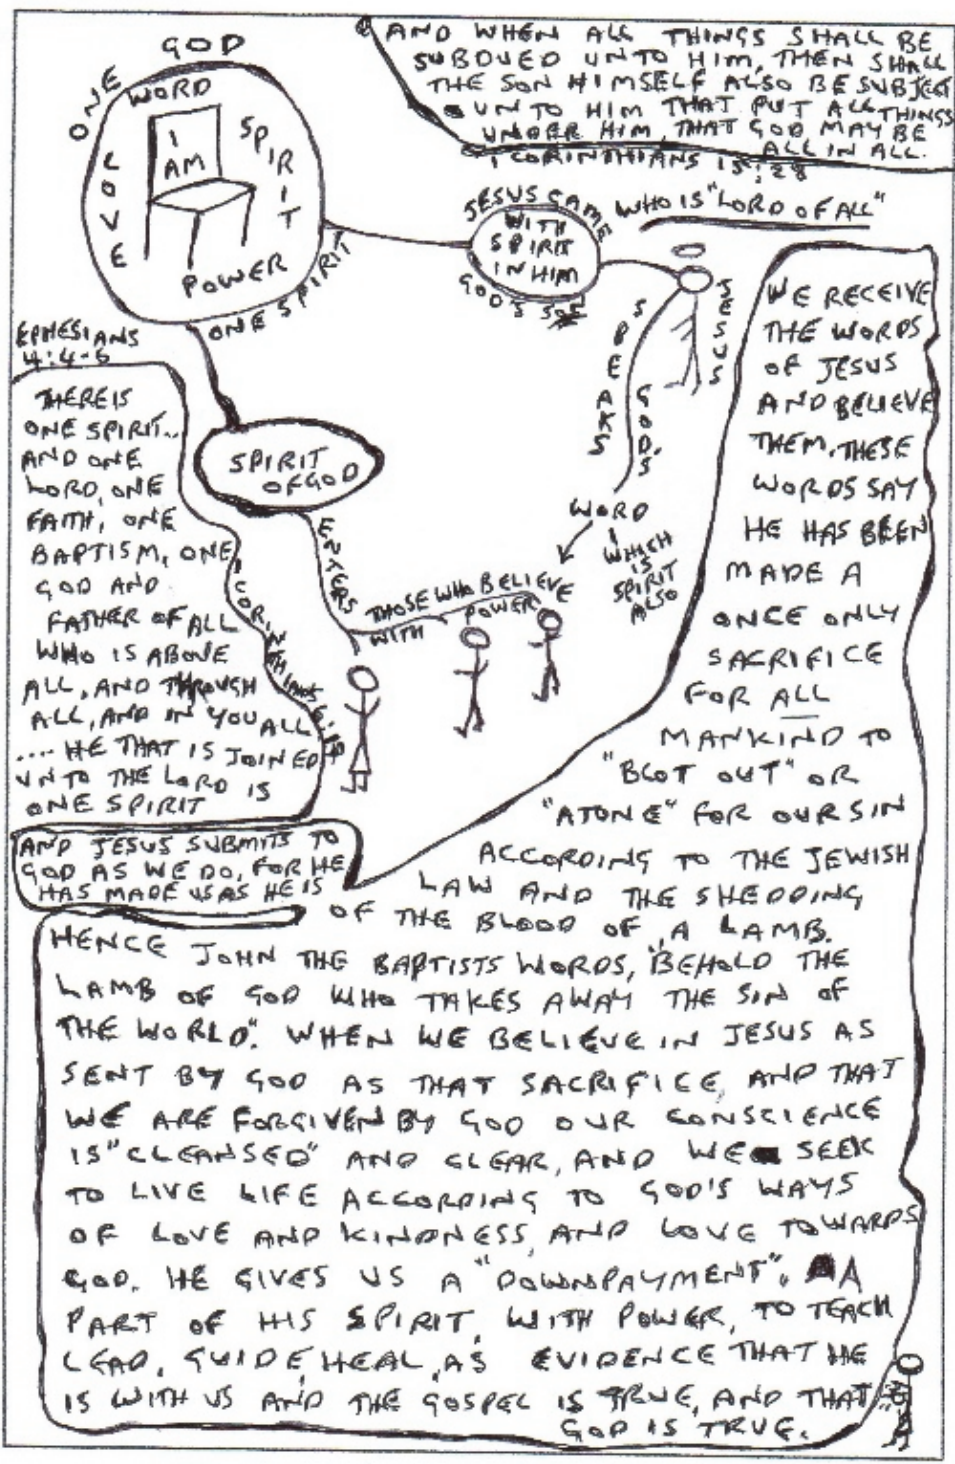 GOD
ONE
WORD
I
AM
SPIRIT
LOVE
POWER
ONE SPIRIT
AND WHEN ALL THINGS SHALL BE
SUBDUED UNTO HIM, THEN SHALL
THE SON HIMSELF ALSO BE SUBJECT
UNTO HIM THAT PUT ALL THINGS
UNDER HIM, THAT GOD MAY BE
ALL IN ALL.
1 CORINTHIANS 15:28
WHO IS "LORD OF ALL"
JESUS CAME
WITH
SPIRIT
IN HIM
GOD'S
JESUS
SPEAKS
GOD'S
WORD
WHICH
IS
SPIRIT
ALSO
SPIRIT
OF GOD
ENTERS
THOSE WHO BELIEVE
WITH POWER
EPHESIANS
4:4-6
THERE IS
ONE SPIRIT...
AND ONE
LORD, ONE
FAITH, ONE
BAPTISM, ONE
GOD AND
FATHER OF ALL
WHO IS ABOVE
ALL, AND THROUGH
ALL, AND IN YOU ALL
.... HE THAT IS JOINED
UNTO THE LORD IS
ONE SPIRIT
1 CORINTHIANS 6:17
AND JESUS SUBMITS TO
GOD AS WE DO, FOR HE
HAS MADE US AS HE IS
WE RECEIVE
THE WORDS
OF JESUS
AND BELIEVE
THEM. THESE
WORDS SAY
HE HAS BEEN
MADE A
ONCE ONLY
SACRIFICE
FOR ALL
MANKIND TO
"BLOT OUT" OR
"ATONE" FOR OUR SIN
ACCORDING TO THE JEWISH
LAW AND THE SHEDDING
OF THE BLOOD OF A LAMB.
HENCE JOHN THE BAPTISTS WORDS, "BEHOLD THE
LAMB OF GOD WHO TAKES AWAY THE SIN OF
THE WORLD". WHEN WE BELIEVE IN JESUS AS
SENT BY GOD AS THAT SACRIFICE, AND THAT
WE ARE FORGIVEN BY GOD OUR CONSCIENCE
IS "CLEANSED" AND CLEAR, AND WE SEEK
TO LIVE LIFE ACCORDING TO GOD'S WAYS
OF LOVE AND KINDNESS, AND LOVE TOWARDS
GOD. HE GIVES US A "DOWNPAYMENT". A
PART OF HIS SPIRIT, WITH POWER, TO TEACH
LEAD, GUIDE, HEAL, AS EVIDENCE THAT HE
IS WITH US AND THE GOSPEL IS TRUE, AND THAT
GOD IS TRUE.